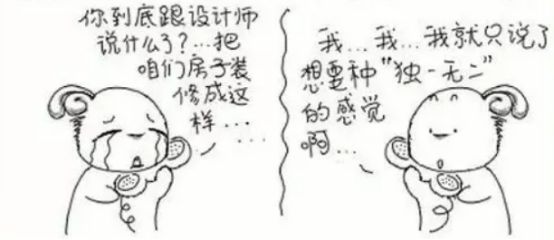 你到底跟设计师
说什么了？...把
咱们房子装
修成这
样....
....
我...我...我就只说了
想要种“独一无二”
的感觉
啊...
....